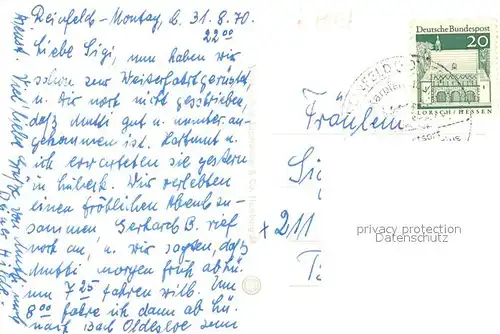 Reinfeld - Montag, d. 31.8.70.
22 00
Liebe Sigi, nun haben wir
schon zur Weiterfahrt gerüstet
u. Dir noch nicht geschrieben,
daß Mutti gut u. munter an-
gekommen ist. Hartmut u.
ich erwarteten sie gestern
in Lübeck. Wir verlebten
einen fröhlichen Abend zu-
sammen. Gerhards B. rief
noch an, u. wir sagten, daß
Mutti morgen früh ab Lü.
um 7 25 fahren will. Um
8 00 fahre ich dann ab Lü.
nach Bad Oldesloe zum
Dienst. Viel liebe Grüße von Mutti, auch
Deutsche Bundespost
20
LORSCH/HESSEN
Fräulein
Si
+ 211
T
privacy protection
Datenschutz